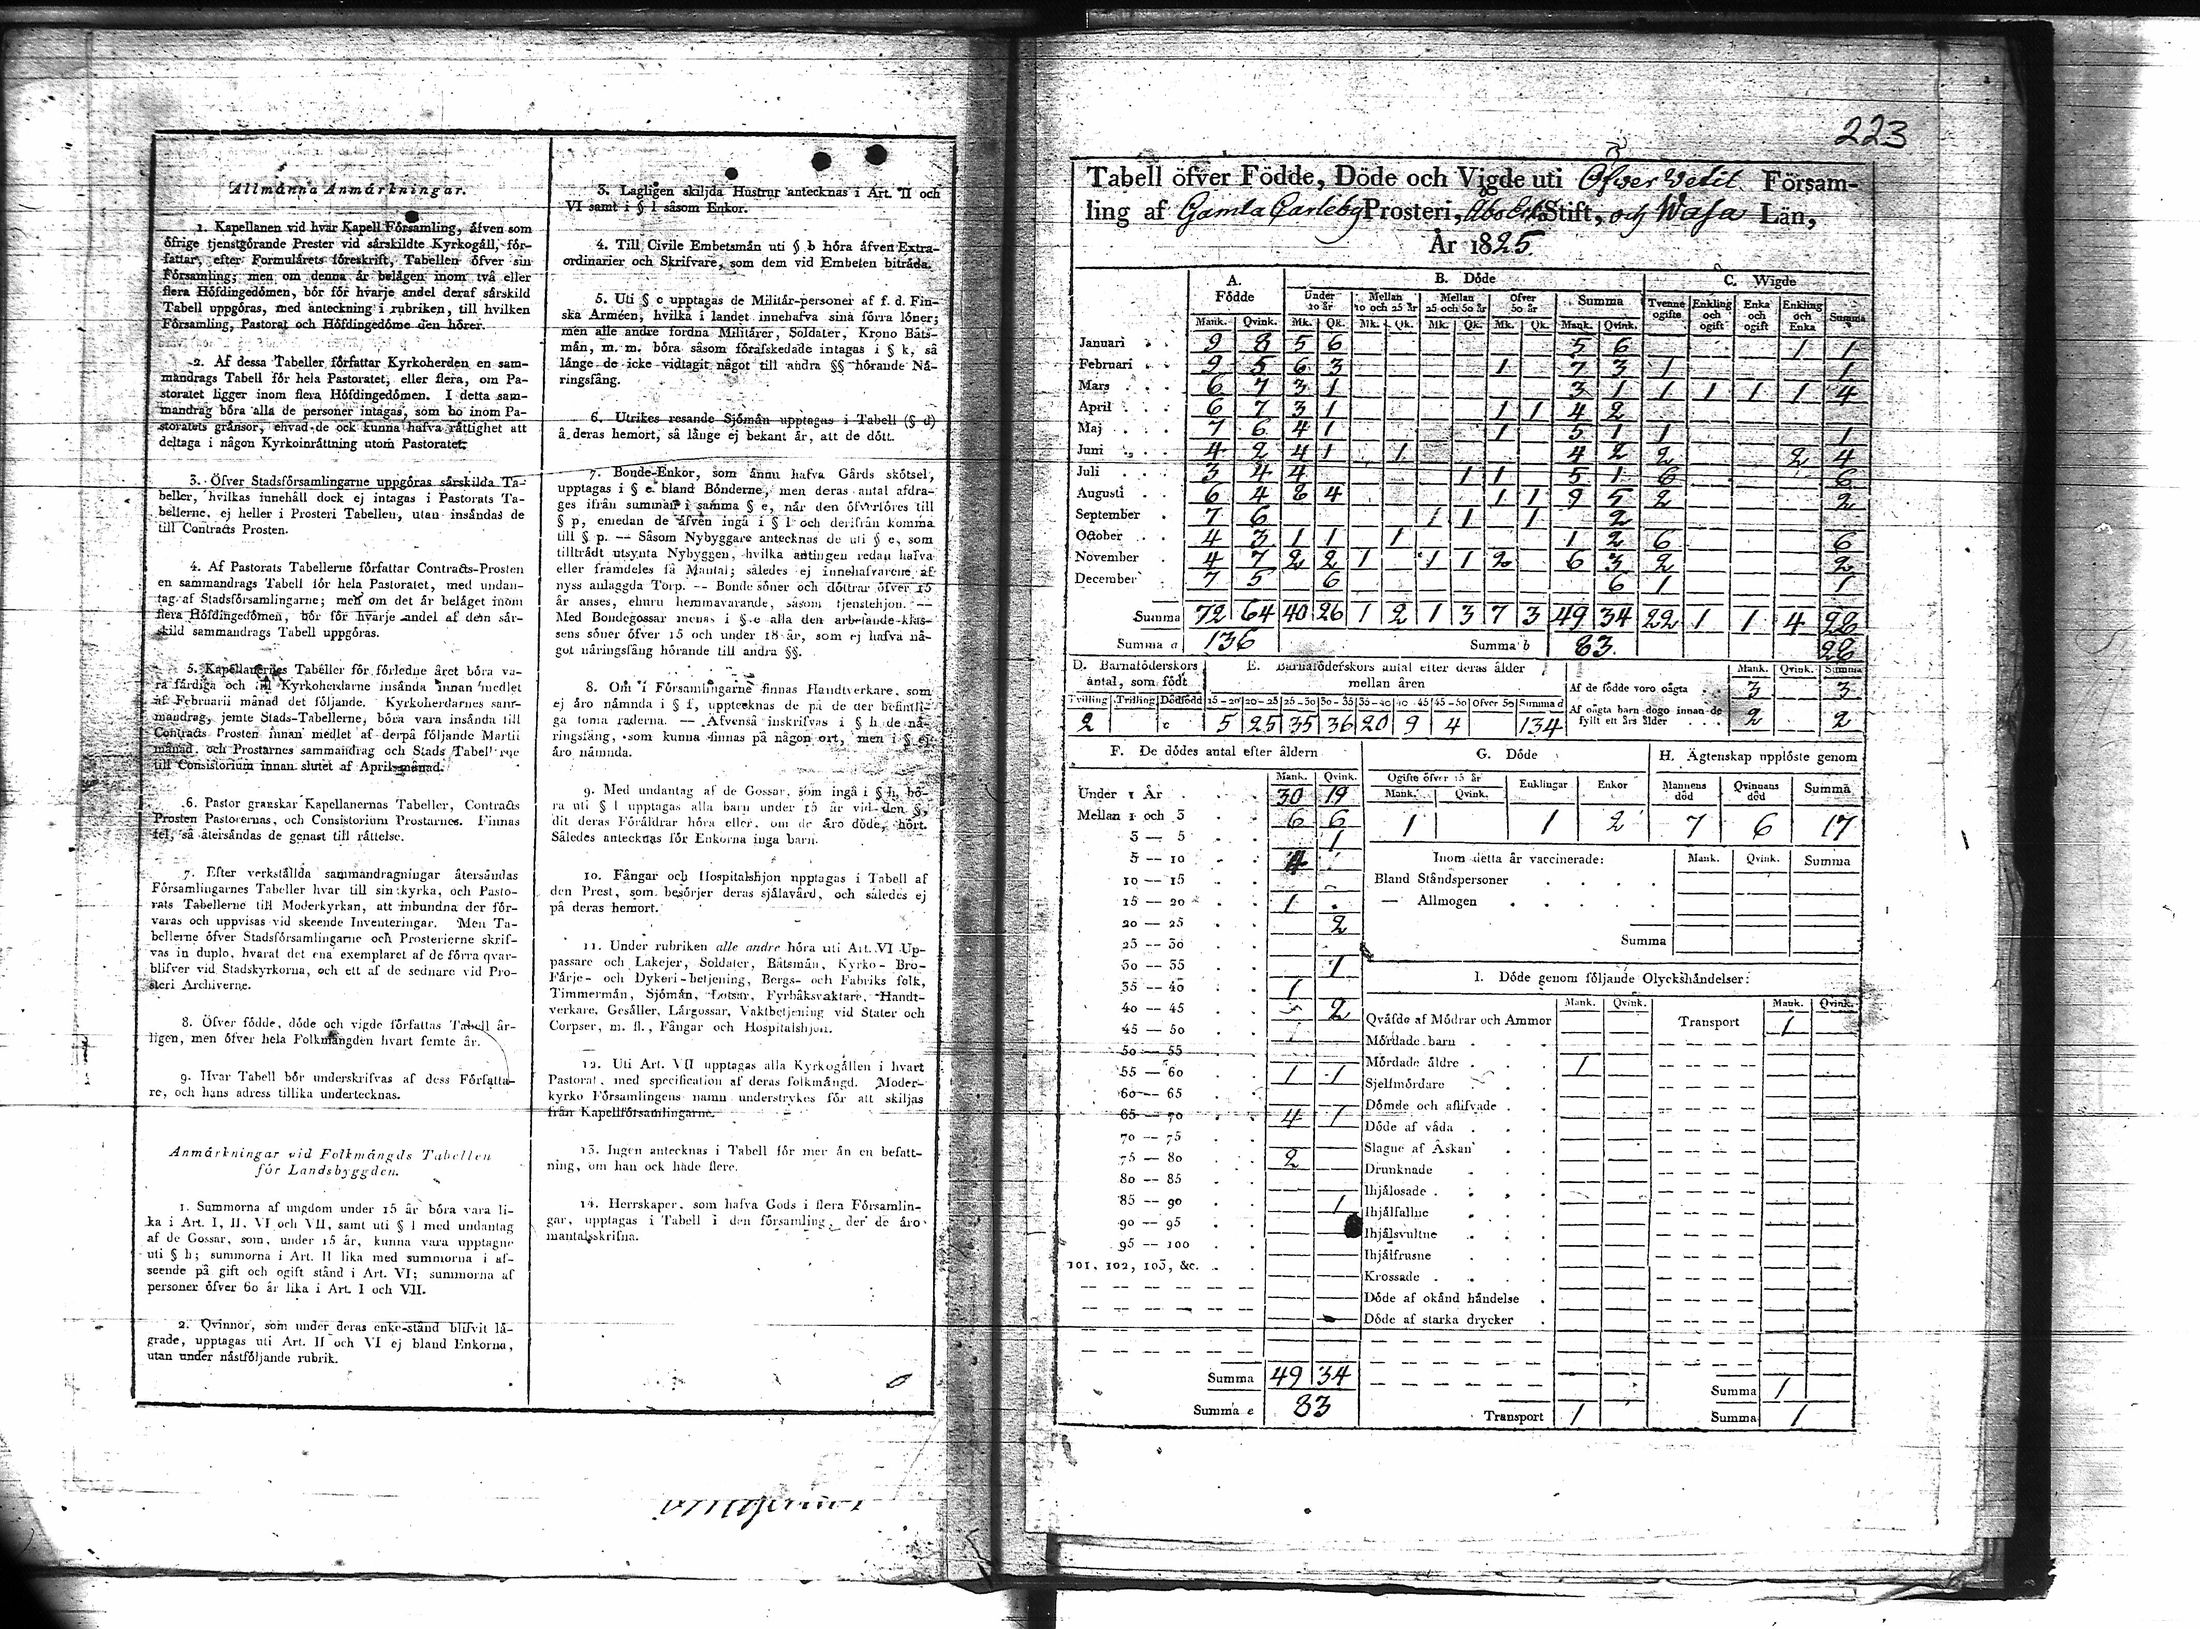 Allmänna Anmärkningar.
1. Kapellanen vid hvar Kapell Församling, äfven som
öfrige tjenstgörande Prester vid särskildte Kyrkogäll, för-
fattar, efter Formulärets föreskrift, Tabellen öfver sin
Församling; men om denna är belägen inom två eller
flera Höfdingedömen, bör för hvarje andel deraf särskild
Tabell uppgöras, med anteckning i rubriken, till hvilken
Församling, Pastorat och Höfdingedöme den hörer.
2. Af dessa Tabeller författar Kyrkoherden en sam-
mandrags Tabell för hela Pastoratet, eller flera, om Pa-
storatet ligger inom flera Höfdingedömen. I detta sam-
mandrag böra alla de personer intagas, som bo inom Pa-
storatets gränsor, ehvad de ock kunna hafva rättighet att
deltaga i någon Kyrkoinrättning utom Pastoratet.
3. Öfver Stadsförsamlingarne uppgöras särskilda Ta-
beller, hvilkas innehåll dock ej intages i Pastorats Ta-
bellerne, ej heller i Prosteri Tabellen, utan insändas de
till Contracts Prosten.
4. Af Pastorats Tabellerne författar Contracts-Prosten
en sammandrags Tabell för hela Pastoratet, med undan-
tag af Stadsförsamlingarne; men om det är beläget inom
flera Höfdingedömen, bör för hvarje andel af den sär-
skild sammandrags Tabell uppgöras.
5. Kapellanernes Tabeller för förledne året böra va-
ra färdiga och till Kyrkoherdarne insända innan medlet
af Februarii månad det följande. Kyrkoherdarnes sam-
mandrag, jemte Stads-Tabellerne, böra vara insända till
Contracts Prosten innan medlet af derpå följande Martii
månad, och Prostarnes sammandrag och Stads Tabellerne
till Consistorium innan slutet af Aprilmånad.
6. Pastor granskar Kapellanernas Tabeller, Contracts
Prosten Pastorernas, och Consistorium Prostarnes. Finnas
fel, så återsändas de genast till rättelse.
7. Efter verkställda sammandragningar återsändas
Församlingarnes Tabeller hvar till sin kyrka, och Pasto-
rats Tabellerne till Moderkyrkan, att inbundna der för-
varas och uppvisas vid skeende Inventeringar. Men Ta-
bellerne öfver Stadsförsamlingarne och Prosterierne skrif-
vas in duplo, hvaraf det ena exemplaret af de förra qvar-
blifver vid Stadskyrkorna, och ett af de sednare vid Pro-
steri Archiverne.
8. Öfver födde, döde och vigde författas Tabell år-
ligen, men öfver hela Folkmängden hvart femte år.
9. Hvar Tabell bör underskrifvas af dess Författa-
re, och hans adress tillika undertecknas.
Anmärkningar vid Folkmängds Tabellen
för Landsbyggden.
1. Summorna af ungdom under 15 år böra vara li-
ka i Art. I, II, VI och VII, samt uti § l med undantag
af de Gossar, som, under 15 år, kunna vara upptagne
uti § h; summorna i Art. II lika med summorna i af-
seende på gift och ogift stånd i Art. VI; summorna af
personer öfver 60 år lika i Art. I och VII.
2. Qvinnor, som under deras enke-stånd blifvit lä-
grade, upptagas uti Art. II och VI ej bland Enkorna,
utan under nästföljande rubrik.
3. Lagligen skiljda Hustrur antecknas i Art. II och
VI samt i § l såsom Enkor.
4. Till Civile Embetsmän uti § b höra äfven Extra-
ordinarier och Skrifvare, som dem vid Embeten biträda.
5. Uti § c upptagas de Militär-personer af f. d. Fin-
ska Arméen, hvilka i landet innehafva sina förra löner;
men alle andre fordna Militärer, Soldater, Krono Båts-
män, m. m. böra såsom förafskedade intagas i § k, så
länge de icke vidtagit något till andra §§ hörande Nä-
ringsfång.
6. Utrikes resande Sjömän upptagas i Tabell (§ d)
å deras hemort, så länge ej bekant är, att de dött.
7. Bonde-Enkor, som ännu hafva Gårds skötsel,
upptagas i § e bland Bönderne, men deras antal afdra-
ges ifrån summan i samma § e, när den öfverföres till
§ p, emedan de äfven ingå i § l och derifrån komma
till § p. — Såsom Nybyggare antecknas de uti § e, som
tillträdt utsynta Nybyggen, hvilka antingen redan hafva
eller framdeles få Mantal; således ej innehafvarene af
nyss anlaggda Torp. — Bonde söner och döttrar öfver 15
år anses, ehuru hemmavarande, såsom tjenstehjon. —
Med Bondegossar menas i § e alla den arbetande klas-
sens söner öfver 15 och under 18 år, som ej hafva nå-
got näringsfång hörande till andra §§.
8. Om i Församlingarne finnas Handtverkare, som
ej äro nämnda i § f, upptecknas de på de der befintli-
ga toma raderna. — Äfvenså inskrifvas i § h de nä-
ringsfång, som kunna finnas på någon ort, men i § ej
äro nämnda.
9. Med undantag af de Gossar, som ingå i § h, bö-
ra uti § l upptagas alla barn under 15 år vid den §,
dit deras Föräldrar höra eller, om de äro döde, hört.
Således antecknas för Enkorna inga barn.
10. Fångar och Hospitalshjon upptagas i Tabell af
den Prest, som besörjer deras själavård, och således ej
på deras hemort.
11. Under rubriken alle andre höra uti Art. VI Up-
passare och Lakejer, Soldater, Båtsmän, Kyrko- Bro-
Färje- och Dykeri-betjening, Bergs- och Fabriks folk,
Timmermän, Sjömän, Lotsar, Fyrbåksvaktare, Handt-
verkare, Gesäller, Lärgossar, Vaktbetjening vid Stater och
Corpser, m. fl., Fångar och Hospitalshjon.
12. Uti Art. VII upptagas alla Kyrkogällen i hvart
Pastorat, med specification af deras folkmängd. Moder-
kyrko Församlingens namn understrykes för att skiljas
från Kapellförsamlingarne.
13. Ingen antecknas i Tabell för mer än en befatt-
ning, om han ock hade flere.
14. Herrskaper, som hafva Gods i flera Församlin-
gar, upptagas i Tabell i den församling, der de äro
mantalsskrifna.
223
Tabell öfver Födde, Döde och Vigde uti Öfwer Vetil Försam-
ling af Gamla Carleby Prosteri, Åbo Erke Stift, och Wasa Län,
År 1825.
A. Födde B. Döde C. Wigde
Under 10 år Mellan 10 och 25 år Mellan 25 och 50 år Öfver 50 år Summa Tvenne ogifte Enkling och ogift Enka och ogift Enkling och Enka Summa
Mank. Qvink. Mk. Qk. Mk. Qk. Mk. Qk. Mk. Qk. Mank. Qvink.
Januari 9 8 5 6 5 6 1 1
Februari 9 5 6 3 1 7 3 1 1
Mars 6 7 3 1 3 1 1 1 1 1 4
April 6 7 3 1 1 1 4 2
Maj 7 6 4 1 1 5 1 1 1
Juni 4 2 4 1 1 4 2 2 2 4
Juli 3 4 4 1 1 5 1 6 6
Augusti 6 4 8 4 1 1 9 5 2 2
September 7 6 1 1 1 2
October 4 3 1 1 1 1 2 6 6
November 4 7 2 2 1 1 1 2 6 3 2 2
December 7 5 6 6 1 1
Summa 72 64 40 26 1 2 1 3 7 3 49 34 22 1 1 4 28
Summa a 136 Summa b 83. 28
D. Barnaföderskors antal, som födt
Tvilling Trilling Dödfödd
2 c
E. Barnaföderskors antal efter deras ålder mellan åren
15—20 20—25 25—30 30—35 35—40 40—45 45—50 Öfver 50 Summa d
5 25 35 36 20 9 4 134
Mank. Qvink. Summa
Af de födde voro oägta 3 3
Af oägta barn dogo innan de fyllt ett års ålder 2 2
F. De dödes antal efter åldern
Mank. Qvink.
Under 1 År 30 19
Mellan 1 och 3 6 6
3 — 5 1
5 — 10 4
10 — 15
15 — 20 1
20 — 25 2
25 — 30
30 — 35 1
35 — 40 1
40 — 45 2
45 — 50
50 — 55
55 — 60 1 1
60 — 65
65 — 70 4 1
70 — 75
75 — 80 2
80 — 85
85 — 90 1
90 — 95
95 — 100
101, 102, 103, &c.
Summa 49 34
Summa e 83
G. Döde
Ogifte öfver 15 år Enklingar Enkor
Mank. Qvink.
1 1 2
H. Ägtenskap upplöste genom
Mannens död Qvinnans död Summa
7 6 17
Inom detta år vaccinerade: Mank. Qvink. Summa
Bland Ståndspersoner
— Allmogen
Summa
I. Döde genom följande Olyckshändelser:
Mank. Qvink. Mank. Qvink.
Qväfde af Mödrar och Ammor Transport 1
Mördade barn
Mördade äldre 1
Sjelfmördare
Dömde och aflifvade
Döde af våda
Slagne af Åskan
Drunknade
Ihjälosade
Ihjälfallne
Ihjälsvultne
Ihjälfrusne
Krossade
Döde af okänd händelse
Döde af starka drycker
Summa 1
Transport 1 Summa 1